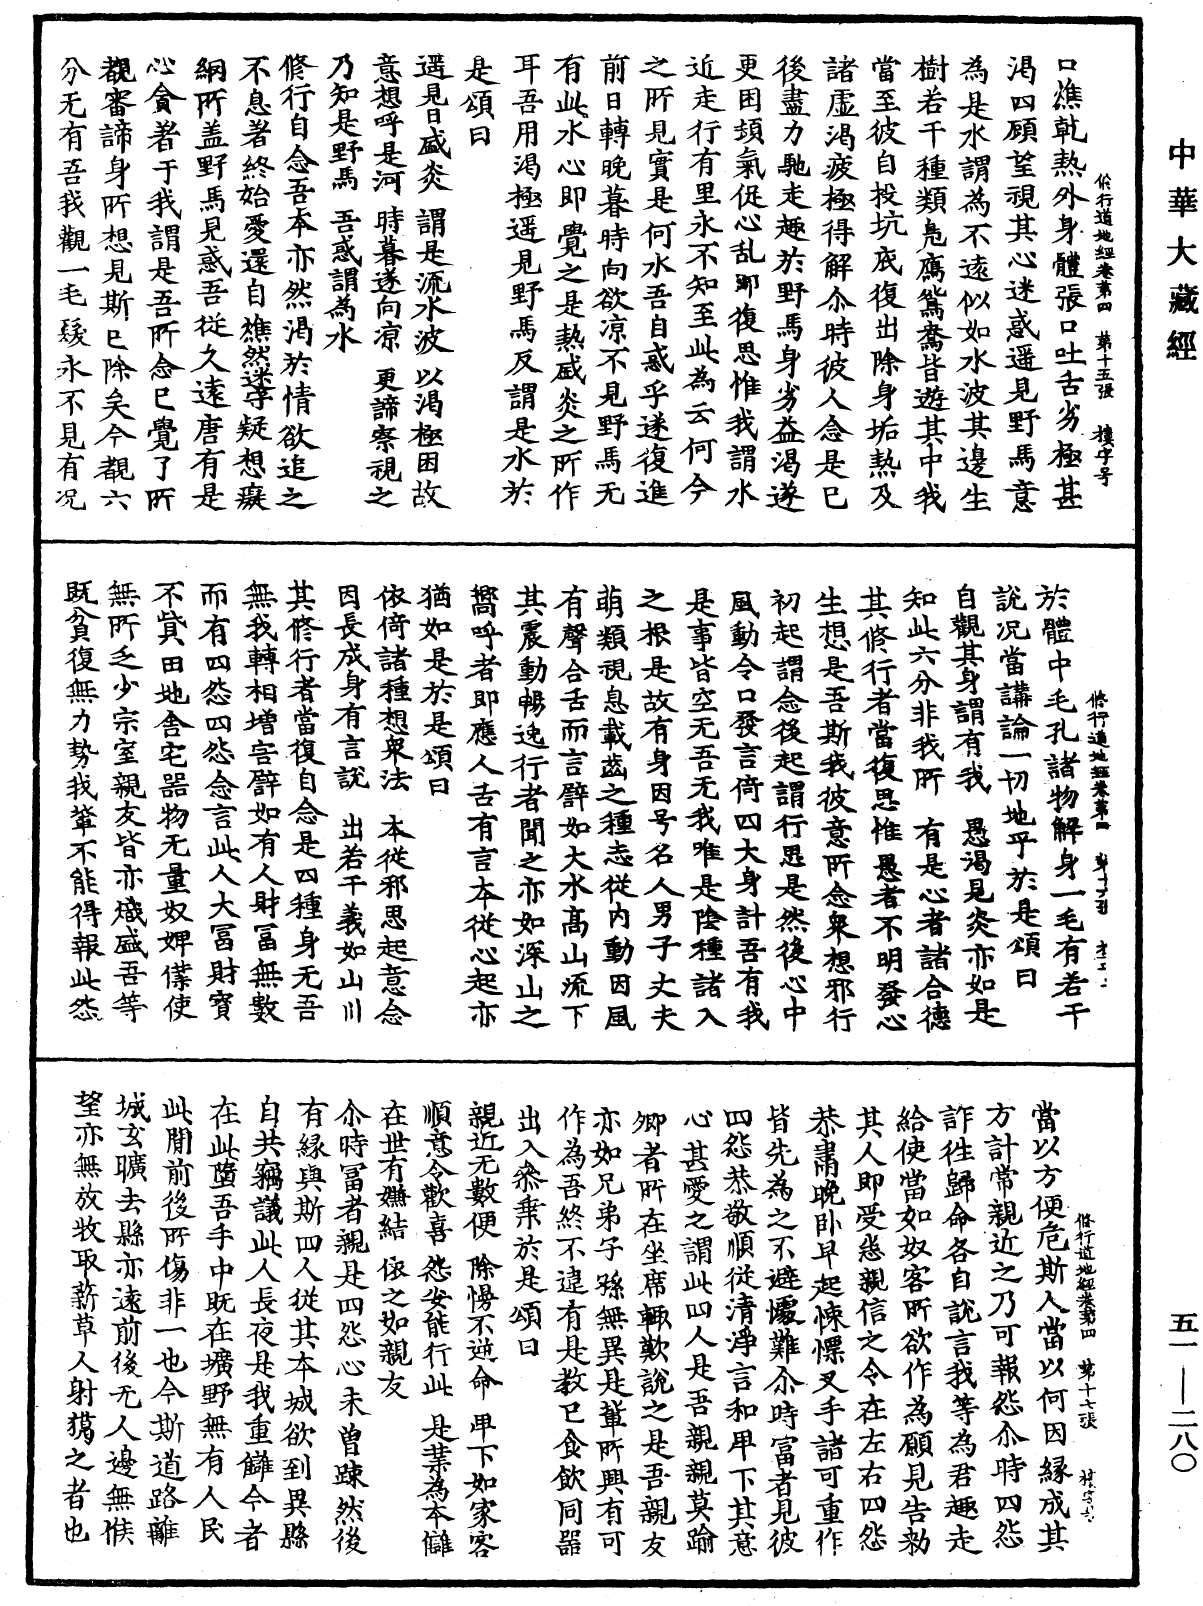 中華大藏經
修行道地經卷第四　第十五張　樓字号
口燋乾熱外身體張口吐舌劣極甚
渴四顧望視其心迷惑遥見野馬意
為是水謂為不遠似如水波其邊生
樹若干種類凫鴈鴛鴦皆遊其中我
當至彼自投坑底復出除身垢熱及
諸虛渴疲極得解尒時彼人念是已
後盡力馳走趣於野馬身劣益渴遂
更困頓氣促心乱即復思惟我謂水
近走行有里永不知至此為云何今
之所見實是何水吾自惑乎遂復進
前日轉晚暮時向欲凉不見野馬无
有此水心即覺之是熱盛炎之所作
耳吾用渴極遥見野馬反謂是水於
是頌曰
遥見日盛炎　謂是流水波　以渴極困故
意想呼是河　時暮遂向凉　更諦察視之
乃知是野馬　吾惑謂為水
修行自念吾本亦然渴於情欲追之
不息著終始愛還自燋然迷孛疑想癡
網所盖野馬見惑吾從久遠唐有是
心貪著于我謂是吾所念已覺了所
覩審諦身所想見斯已除矣今覩六
分无有吾我觀一毛髮永不見有况
修行道地經卷第四　第十六張
於體中毛孔諸物解身一毛有若干
說况當講論一切地乎於是頌曰
自觀其身謂有我　愚渴見炎亦如是
知此六分非我所　有是心者諸合德
其修行者當復思惟愚者不明發心
生想是吾斯我彼意所念衆想邪行
初起謂念後起謂行思是然後心中
風動令口發言倚四大身計吾有我
是事皆空无吾无我唯是陰種諸入
之根是故有身因号名人男子丈夫
萌類視息載齒之種志從内動因風
有聲合舌而言譬如大水髙山流下
其震動暢逸行者聞之亦如深山之
嚮呼者即應人舌有言本從心起亦
猶如是於是頌曰
依倚諸種想衆法　本從邪思起意念
因長成身有言說　出若干義如山川
其修行者當復自念是四種身无吾
無我轉相增害譬如有人財冨無數
而有四怨四怨念言此人大冨財寶
不貲田地舍宅噐物无量奴婢僕使
無所乏少宗室親友皆亦熾盛吾等
既貧復無力勢我輩不能得報此怨
修行道地經卷第四　第十七張
當以方便危斯人當以何因緣成其
方計常親近之乃可報怨尒時四怨
詐往歸命各自說言我等為君趣走
給使當如奴客所欲作為願見告勑
其人即受恣親信之令在左右四怨
恭肅晚卧早起悚慄叉手諸可重作
皆先為之不避懮難尒時富者見彼
四怨恭敬順從清淨言和甲下其意
心甚愛之謂此四人是吾親親莫踰
卿者所在坐席輙歎說之是吾親友
亦如兄弟子孫無異是輩所興有可
作為吾終不違有是教已食飲同噐
出入叅乗於是頌曰
親近无數便　除慢不逆命　甲下如家客
順意令歡喜　怨安能行此　是葉為本讎
在世有嫌結　依之如親友
尒時冨者親是四怨心未曾踈然後
有緣與斯四人從其本城欲到異縣
自共竊議此人長夜是我重讎今者
在此墮吾手中既在壙野無有人民
此閒前後所傷非一也今斯道路離
城玄曠去縣亦遠前後无人邊無候
望亦無放牧取薪草人射獦之者也
五一——二八〇